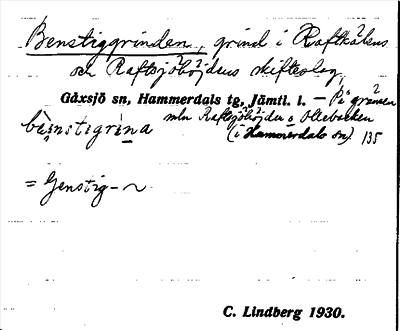 Benstiggrinden, grind i Raftkälens
och Raftsjöhöjdens skifteslag.
Gåxsjö sn, Hammerdals tg, Jämtl. l. — På gränsen
bènstigrìna mln Raftsjöhöjden o Ollebacken
(i Hammerdals sn) 135
= Genstig- ~
C. Lindberg 1930.